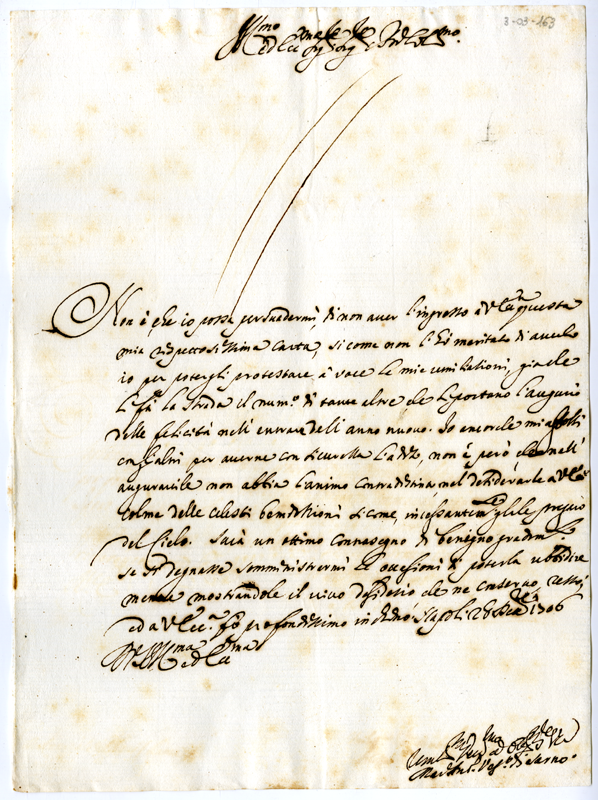 3-03-163
Ill.mo ed Ecc.
Non è, che io possa persuadermi, di non aver l'ingresso a V. Ecc.za questa
mia rispettosissima Carta, si come non l'hò meritato di averlo
io per potergli protestare à voce le mie umiliationi, giache
li fà la strada il num.o di tante altre che li portano l'augurio
delle felicità nell'entrare dell'anno nuovo. Io ancorche mi affolli
con gl'altri per averne con sicurezza l'adito, non è però che nell'
augurarcile non abbia l'animo contradistinto nel desiderarle a V. Ecc.
colme delle celesti benedittioni si come, incessantem.te gle le
del Cielo. Sarà un ottimo contrasegno di benigno gradim.to
se si degnasse somministrarmi le occasioni di poterla ubbidire
mentre mostrandole il vivo desiderio che ne conservo, resto,
ed a V. Ecc. fò profondissimo inchino Napoli 28 Xbre 1706
Di V. Ill.ma ed Ecc.ma
di Sarno.